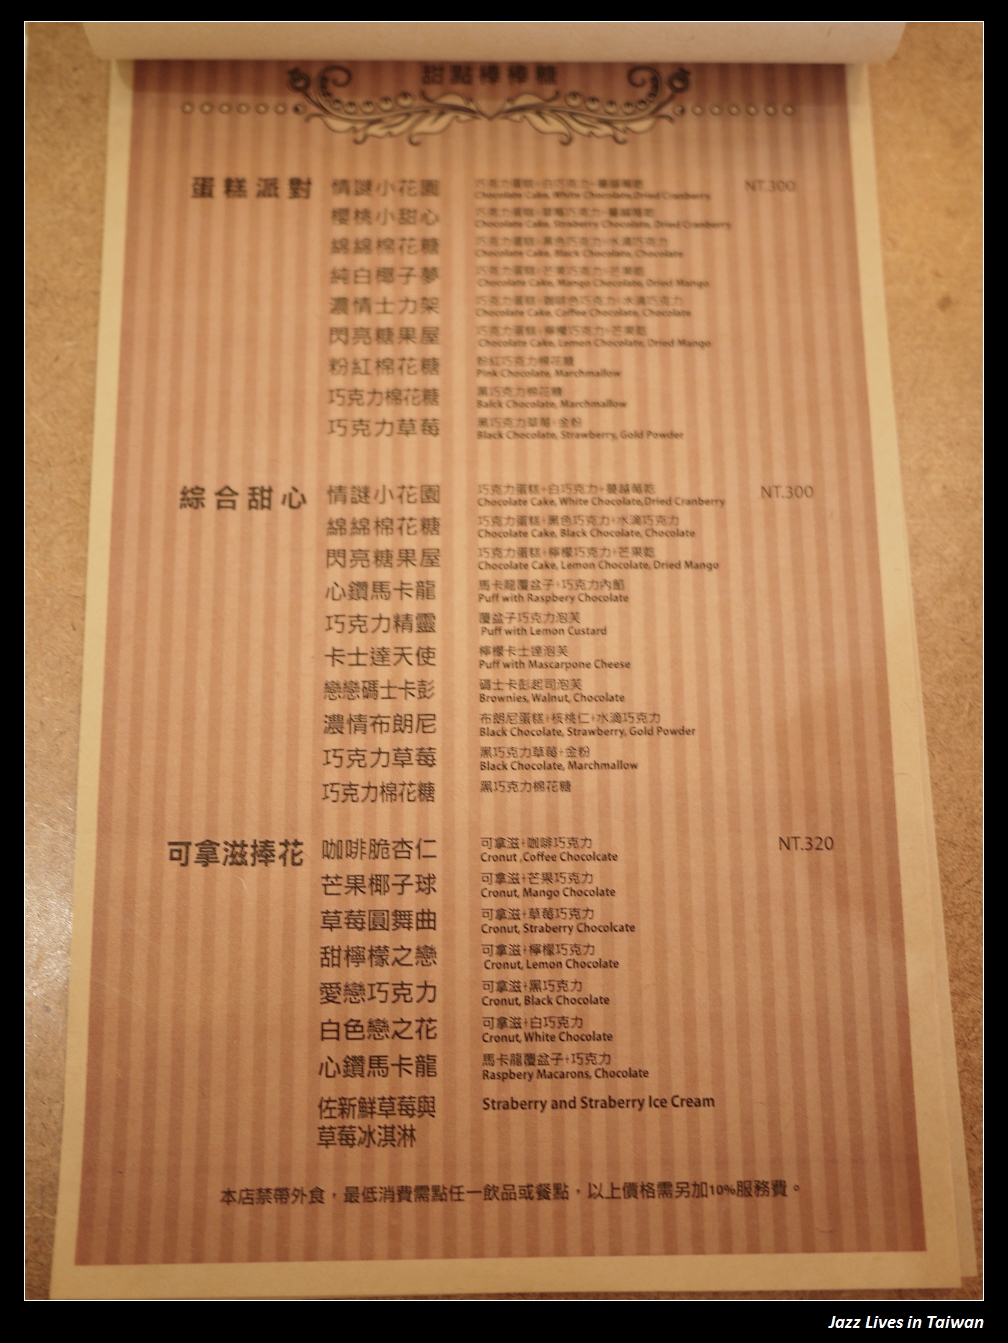 甜點棒棒糖
蛋糕派對 情謎小花園 巧克力蛋糕+白巧克力+蔓越莓乾 NT.300
Chocolate Cake, White Chocolate,Dried Cranberry
櫻桃小甜心 巧克力蛋糕+草莓巧克力+蔓越莓乾
Chocolate Cake, Straberry Chocolate, Dried Cranberry
綿綿棉花糖 巧克力蛋糕+黑色巧克力+水滴巧克力
Chocolate Cake, Black Chocolate, Chocolate
純白椰子夢 巧克力蛋糕+芒果巧克力+芒果乾
Chocolate Cake, Mango Chocolate, Dried Mango
濃情士力架 巧克力蛋糕+咖啡色巧克力+水滴巧克力
Chocolate Cake, Coffee Chocolate, Chocolate
閃亮糖果屋 巧克力蛋糕+檸檬巧克力+芒果乾
Chocolate Cake, Lemon Chocolate, Dried Mango
粉紅棉花糖 粉紅巧克力棉花糖
Pink Chocolate, Marchmallow
巧克力棉花糖 黑巧克力棉花糖
Balck Chocolate, Marchmallow
巧克力草莓 黑巧克力草莓+金粉
Black Chocolate, Strawberry, Gold Powder
綜合甜心 情謎小花園 巧克力蛋糕+白巧克力+蔓越莓乾 NT.300
Chocolate Cake, White Chocolate,Dried Cranberry
綿綿棉花糖 巧克力蛋糕+黑色巧克力+水滴巧克力
Chocolate Cake, Black Chocolate, Chocolate
閃亮糖果屋 巧克力蛋糕+檸檬巧克力+芒果乾
Chocolate Cake, Lemon Chocolate, Dried Mango
心鑽馬卡龍 馬卡龍覆盆子+巧克力內餡
Puff with Raspbery Chocolate
巧克力精靈 覆盆子巧克力泡芙
Puff with Lemon Custard
卡士達天使 檸檬卡士達泡芙
Puff with Mascarpone Cheese
戀戀碼士卡彭 碼士卡彭起司泡芙
Brownies, Walnut, Chocolate
濃情布朗尼 布朗尼蛋糕+核桃仁+水滴巧克力
Black Chocolate, Strawberry, Gold Powder
巧克力草莓 黑巧克力草莓+金粉
Black Chocolate, Marchmallow
巧克力棉花糖 黑巧克力棉花糖
可拿滋捧花 咖啡脆杏仁 可拿滋+咖啡巧克力 NT.320
Cronut ,Coffee Chocolcate
芒果椰子球 可拿滋+芒果巧克力
Cronut, Mango Chocolate
草莓圓舞曲 可拿滋+草莓巧克力
Cronut, Straberry Chocolcate
甜檸檬之戀 可拿滋+檸檬巧克力
Cronut, Lemon Chocolate
愛戀巧克力 可拿滋+黑巧克力
Cronut, Black Chocolate
白色戀之花 可拿滋+白巧克力
Cronut, White Chocolate
心鑽馬卡龍 馬卡龍覆盆子+巧克力
Raspbery Macarons, Chocolate
佐新鮮草莓與 Straberry and Straberry Ice Cream
草莓冰淇淋
本店禁帶外食，最低消費需點任一飲品或餐點，以上價格需另加10%服務費。
Jazz Lives in Taiwan